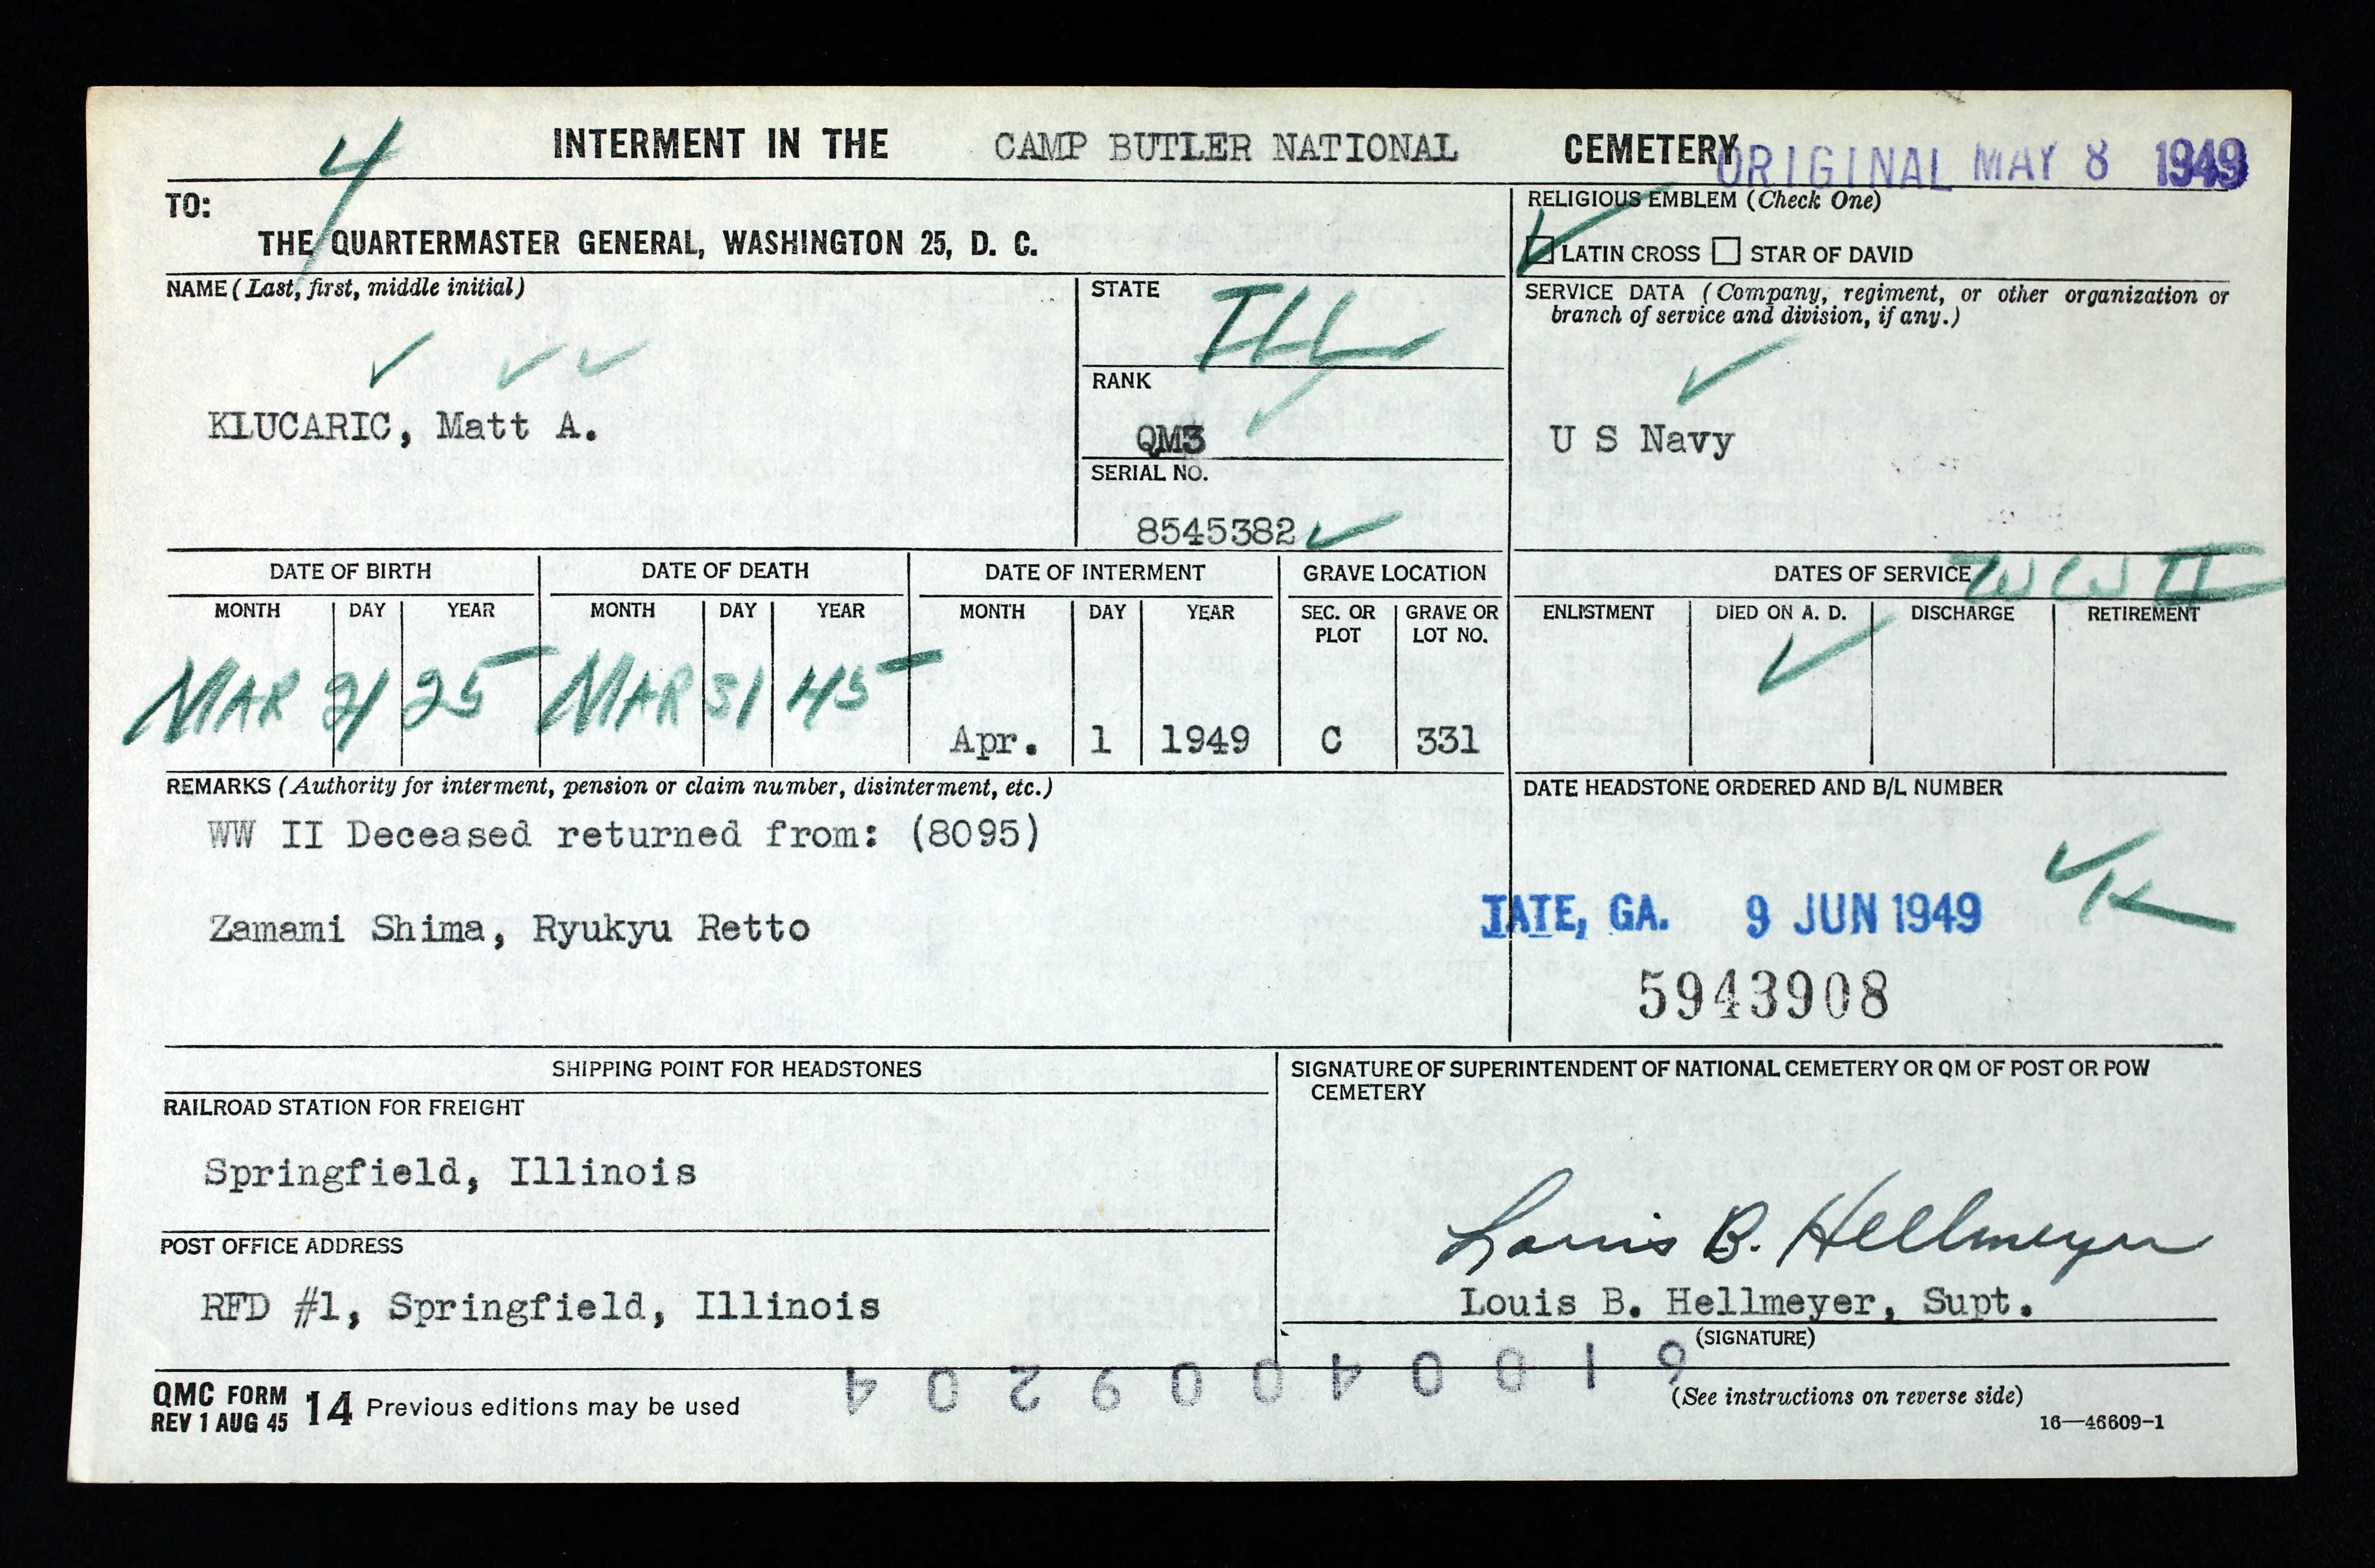 4
INTERMENT IN THE CAMP BUTLER NATIONAL CEMETERY
ORIGINAL MAY 8 1949
TO:
THE QUARTERMASTER GENERAL, WASHINGTON 25, D. C.
RELIGIOUS EMBLEM (Check One)
LATIN CROSS STAR OF DAVID
NAME (Last, first, middle initial)
KLUCARIC, Matt A.
STATE
ILL
RANK
QM3
SERIAL NO.
8545382
SERVICE DATA (Company, regiment, or other organization or
branch of service and division, if any.)
U S Navy
DATE OF BIRTH
MONTH DAY YEAR
MAR 21 25
DATE OF DEATH
MONTH DAY YEAR
MAR 31 45
DATE OF INTERMENT
MONTH DAY YEAR
Apr. 1 1949
GRAVE LOCATION
SEC. OR PLOT
GRAVE OR LOT NO.
C 331
DATES OF SERVICE WW II
ENLISTMENT DIED ON A. D. DISCHARGE RETIREMENT
REMARKS (Authority for interment, pension or claim number, disinterment, etc.)
WW II Deceased returned from: (8095)
Zamami Shima, Ryukyu Retto
DATE HEADSTONE ORDERED AND B/L NUMBER
TATE, GA. 9 JUN 1949
5943908
SHIPPING POINT FOR HEADSTONES
RAILROAD STATION FOR FREIGHT
Springfield, Illinois
POST OFFICE ADDRESS
RFD #1, Springfield, Illinois
SIGNATURE OF SUPERINTENDENT OF NATIONAL CEMETERY OR QM OF POST OR POW
CEMETERY
Louis B. Hellmeyer
Louis B. Hellmeyer, Supt.
(SIGNATURE)
QMC FORM 14 Previous editions may be used
REV 1 AUG 45
(See instructions on reverse side)
16—46609-1